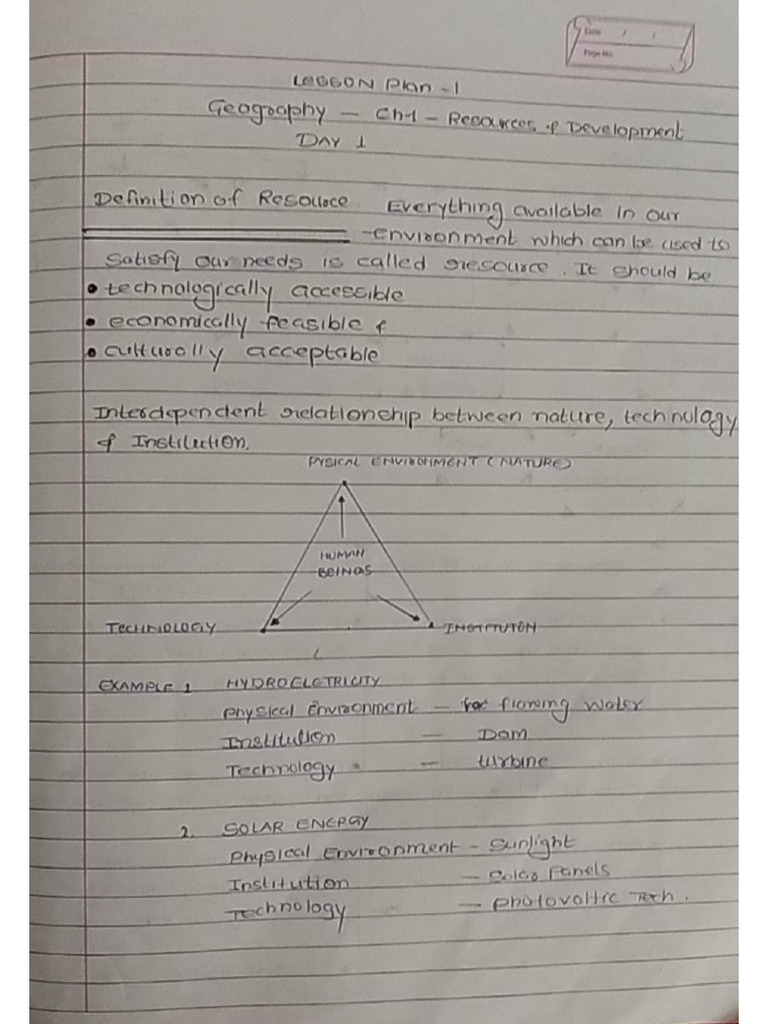 Date / /
Page No.
LESSON Plan - 1
Geography - Ch-1 - Resources & Development
DAY 1
Definition of Resource Everything available in our
-environment which can be used to
satisfy our needs is called resource. It should be
• technologically accessible
• economically feasible &
• culturally acceptable
Interdependent relationship between nature, technology
& Institution.
PYSICAL ENVIRONMENT (NATURE)
HUMAN
BEINGS
TECHNOLOGY INSTITUTON
EXAMPLE 1 HYDROELETRICITY
Physical Environment - flowing Water
Institution - Dam
Technology - turbine
2. SOLAR ENERGY
Physical Environment - Sunlight
Institution - Solar Panels
Technology - Photovoltic Tech.